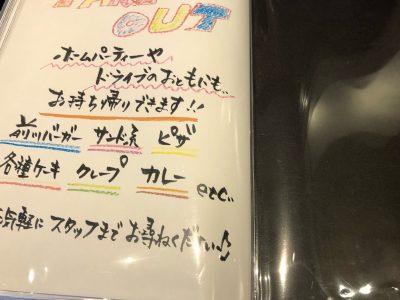 TAKE
OUT
ホームパーティーや
ドライブのおともにも、
お持ち帰りできます!!
バーガー サンド ピザ
各種ケーキ クレープ カレー etc..
気軽にスタッフまでお尋ねください♪